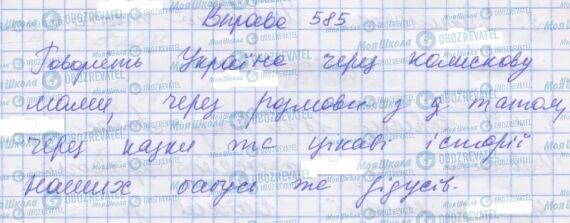 Вправа 585
Говорить Україна через колискову
мами, через розмови з татом,
через казки та цікаві історії
наших бабусь та дідусів.